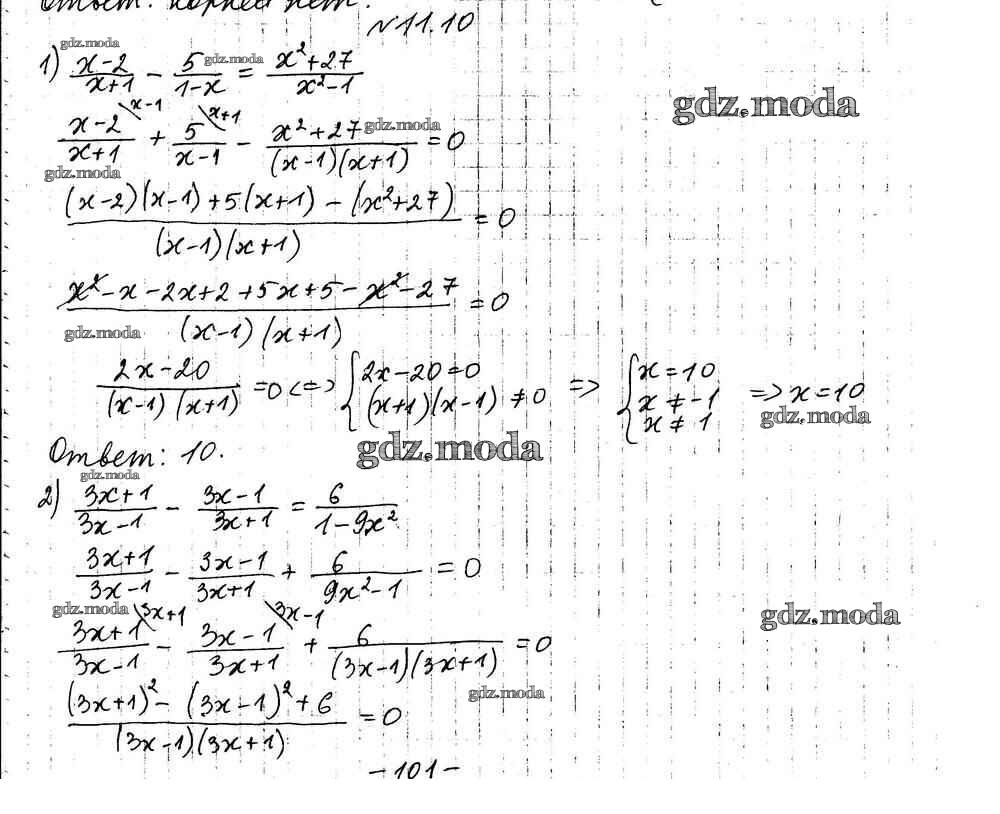 Ответ: корней нет.
№11.10
gdz.moda
1) (x-2)/(x+1) - 5/(1-x) = (x²+27)/(x²-1)
gdz.moda
gdz.moda
(x-2)/(x+1) \x-1 + 5/(x-1) \x+1 - (x²+27)/((x-1)(x+1)) = 0
gdz.moda
gdz.moda
((x-2)(x-1)+5(x+1)-(x²+27))/((x-1)(x+1)) = 0
(x²-x-2x+2+5x+5-x²-27)/((x-1)(x+1)) = 0
gdz.moda
(2x-20)/((x-1)(x+1)) = 0 <=> { 2x-20=0 (x+1)(x-1) ≠ 0 => { x=10 x≠-1 x≠1 => x=10
gdz.moda
Ответ: 10.
gdz.moda
gdz.moda
2) (3x+1)/(3x-1) - (3x-1)/(3x+1) = 6/(1-9x²)
(3x+1)/(3x-1) - (3x-1)/(3x+1) + 6/(9x²-1) = 0
gdz.moda
gdz.moda
(3x+1)/(3x-1) \3x+1 - (3x-1)/(3x+1) \3x-1 + 6/((3x-1)(3x+1)) = 0
gdz.moda
((3x+1)²-(3x-1)²+6)/((3x-1)(3x+1)) = 0
-101-